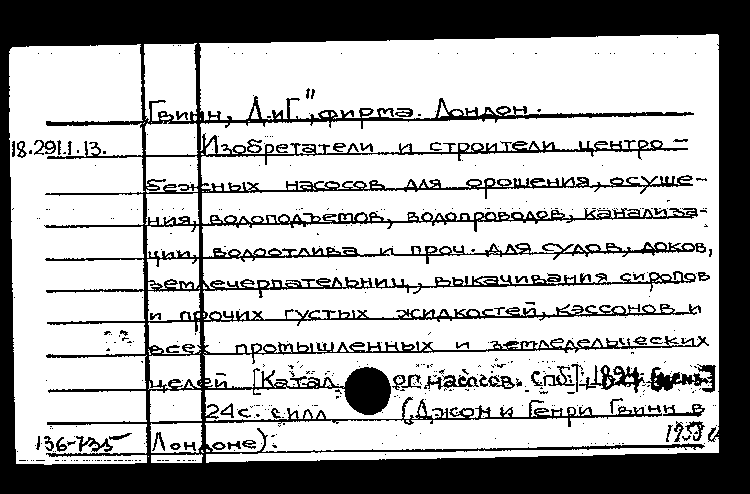 Гвинн, Д.иГ.", фирма. Лондон.
18.291.1.13. Изобретатели и строители центро-
бежных насосов для орошения, осуше-
ния, водоподъемов, водопроводов, канализа-
ции, водоотлива и проч. для судов, доков,
землечерпательниц, выкачивания сиропов
и прочих густых жидкостей, кессонов и
всех промышленных и земледельческих
целей. [Катал ог насосов. Спб.], 1894
24с. илл (Джон и Генри Гвинн в
136-735 Лондоне).